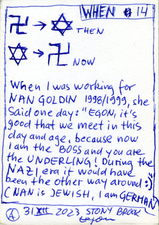 WHEN #14
THEN
NOW
When I was working for
NAN GOLDIN 1998/1999, she
Said one day: "EGON, it's
good that we meet in this
day and age, because now
I am the "BOSS and you are
the UNDERLING! During the
NAZI era it would have
been the other way around :))
(NAN is JEWISH, I am GERMAN)
31 XII 2023 STONY BROOK